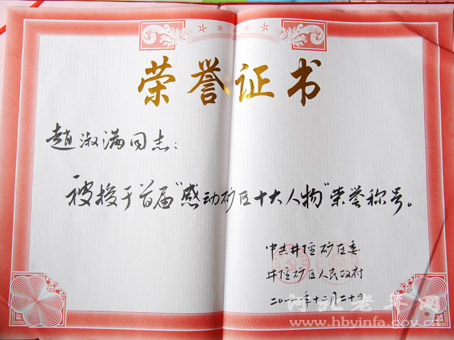 荣誉证书
赵淑满同志：
被授于首届“感动矿区十大人物”荣誉称号。
中共井陉矿区委
井陉矿区人民政府
十二月二十日
www.hbyinfa.gov.cn